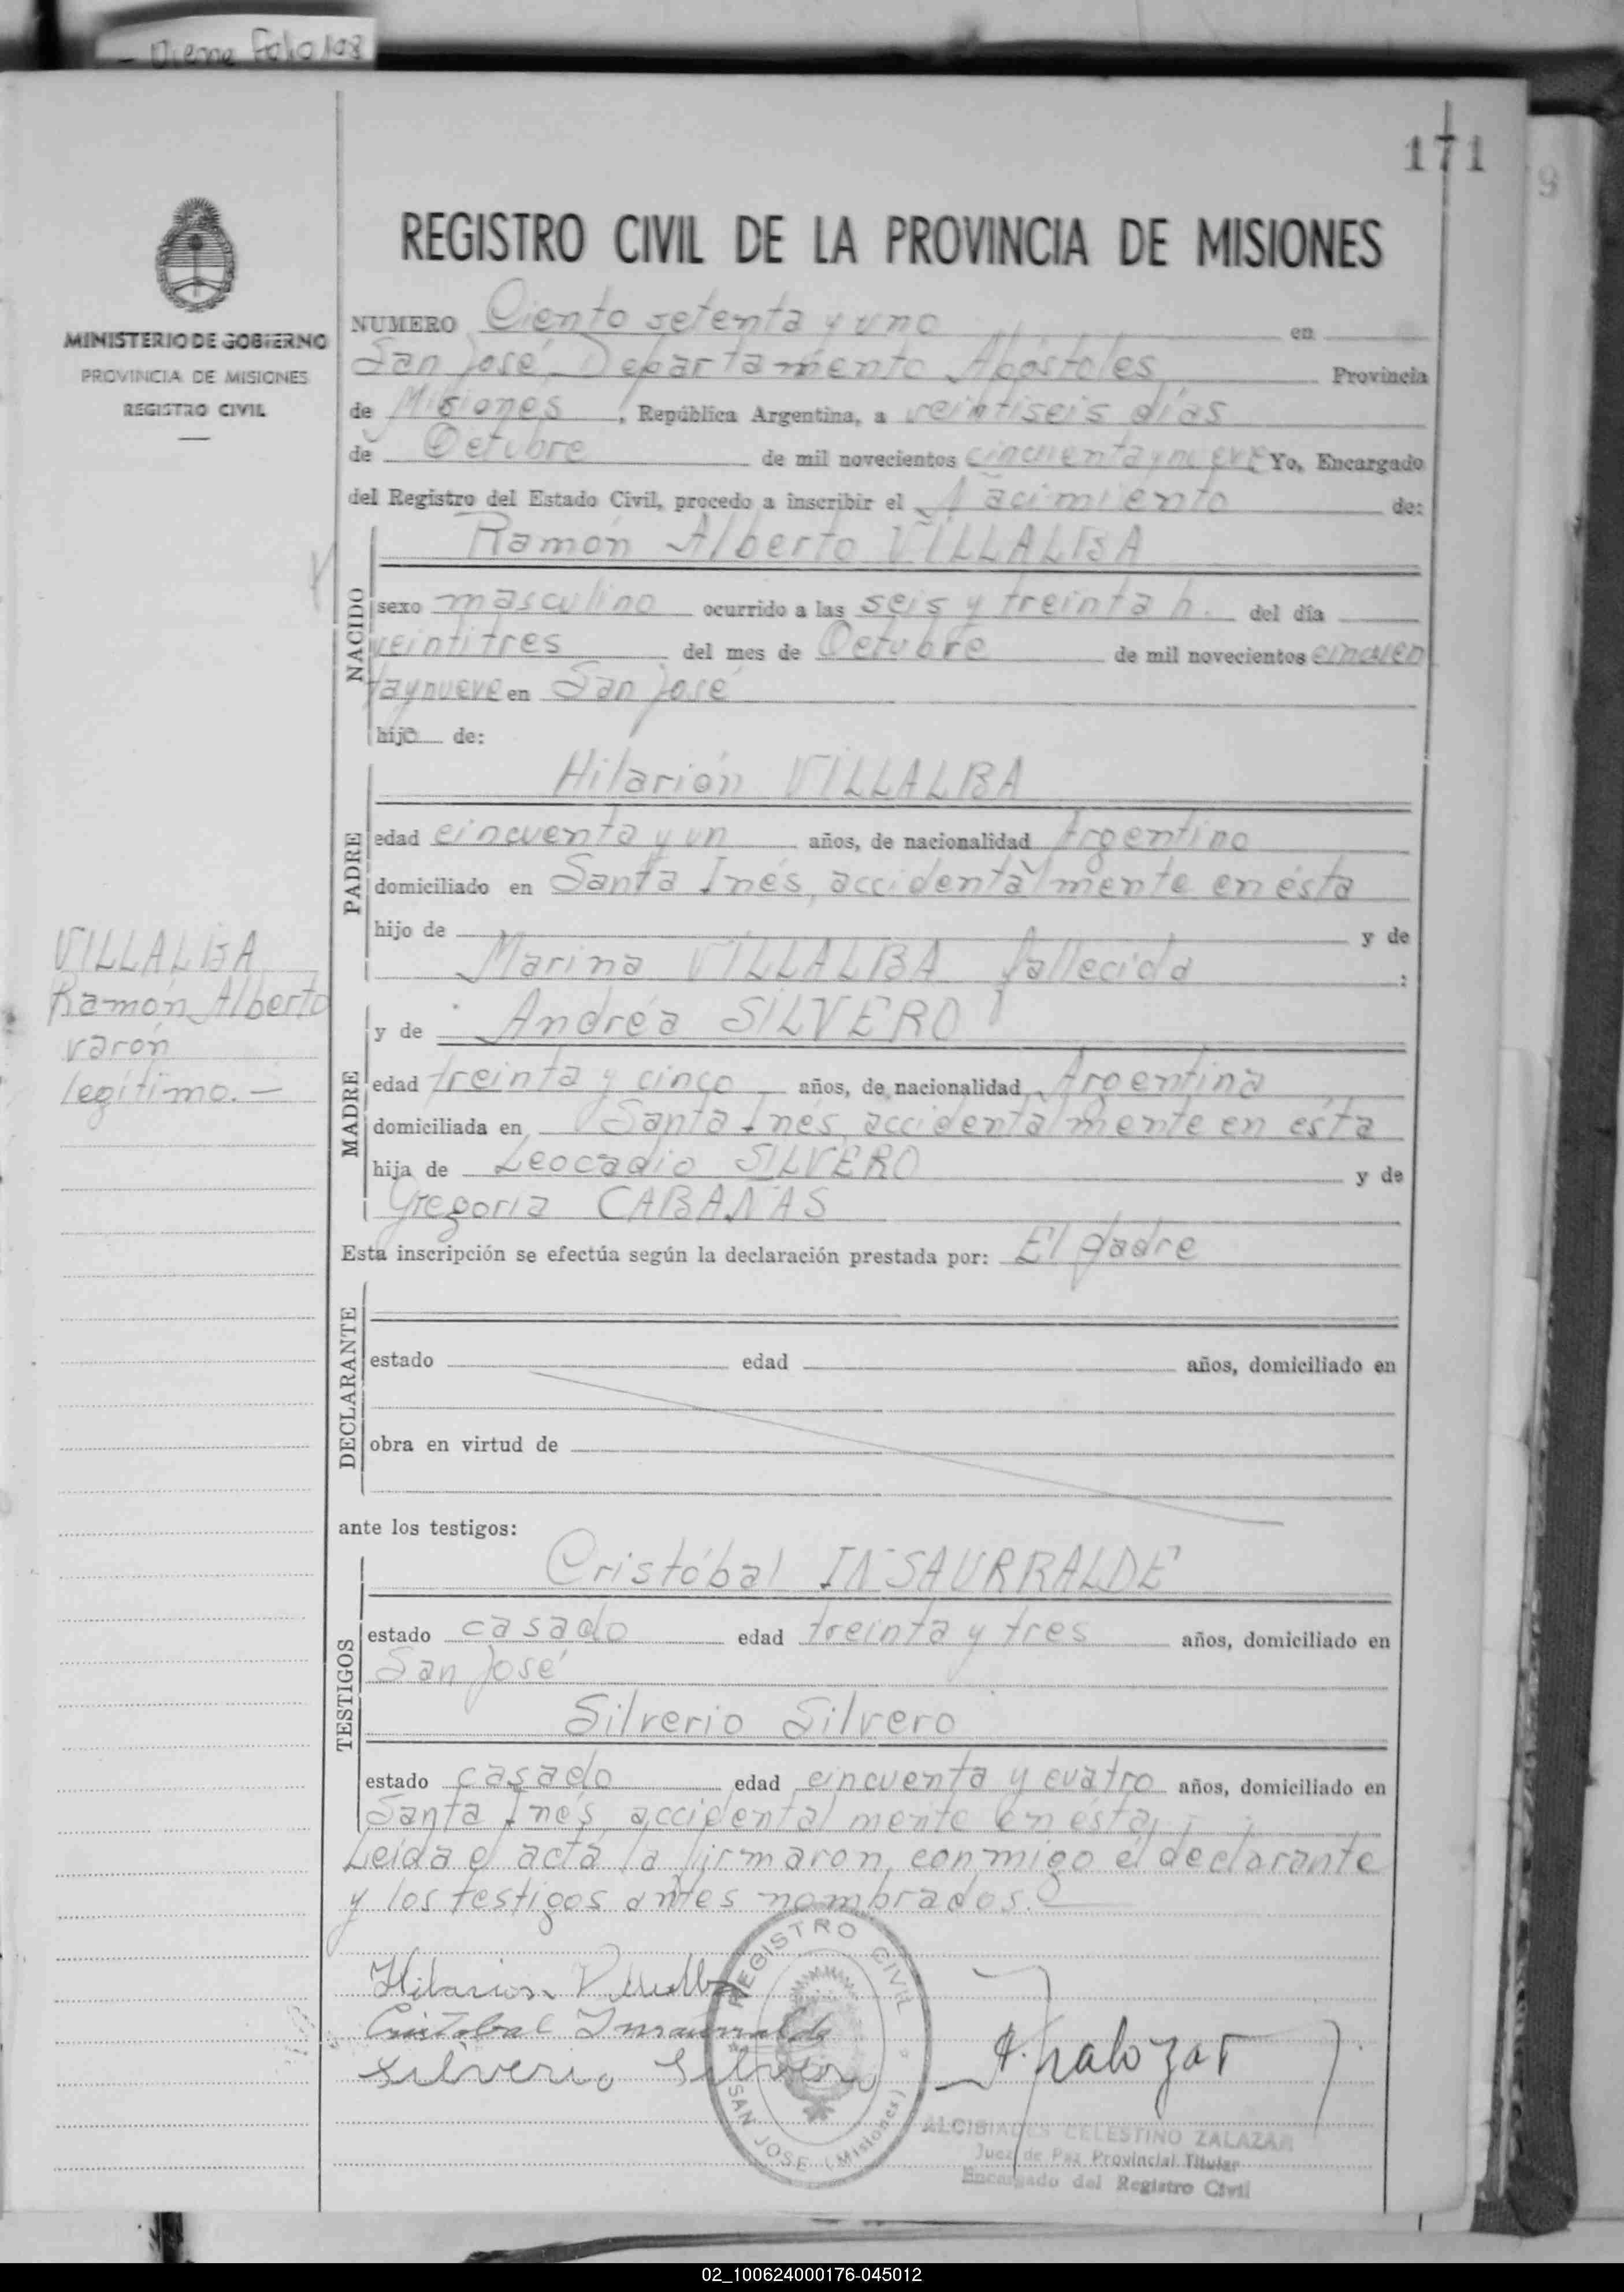 Viene Folio 108
171
REGISTRO CIVIL DE LA PROVINCIA DE MISIONES
MINISTERIO DE GOBIERNO
PROVINCIA DE MISIONES
REGISTRO CIVIL
NUMERO Ciento setenta y uno en
San José, Departamento Apóstoles Provincia
de Misiones, República Argentina, a veintiseis días
de Octubre de mil novecientos cincuenta y nueve Yo, Encargado
del Registro del Estado Civil, procedo a inscribir el Nacimiento de:
NACIDO
Ramón Alberto VILLALBA
sexo masculino ocurrido a las seis y treinta h. del día
veintitres del mes de Octubre de mil novecientos cincuen
ta y nueve en San José
hijo de:
PADRE
Hilarión VILLALBA
edad cincuenta y un años, de nacionalidad Argentino
domiciliado en Santa Inés, accidentalmente en ésta
hijo de y de
Marina VILLALBA fallecida :
VILLALBA
Ramón Alberto
varón
legítimo. —
MADRE
y de Andréa SILVERO
edad treinta y cinco años, de nacionalidad Argentina
domiciliada en Santa Inés, accidentalmente en ésta
hija de Leocadio SILVERO y de
Gregoria CABAÑAS
Esta inscripción se efectúa según la declaración prestada por: El padre
DECLARANTE
estado edad años, domiciliado en
obra en virtud de
ante los testigos:
TESTIGOS
Cristóbal INSAURRALDE
estado casado edad treinta y tres años, domiciliado en
San José
Silverio Silvero
estado casado edad cincuenta y cuatro años, domiciliado en
Santa Inés, accidentalmente en ésta,
Leída el acta la firmaron conmigo el declarante
y los testigos antes nombrados. —
Hilarion Villalba
Cristobal Insaurralde
Silverio Silvero
REGISTRO CIVIL
SAN JOSE (Misiones)
A. Zalazar
ALCIBIADES CELESTINO ZALAZAR
Juez de Paz Provincial Titular
Encargado del Registro Civil
02_100624000176-045012